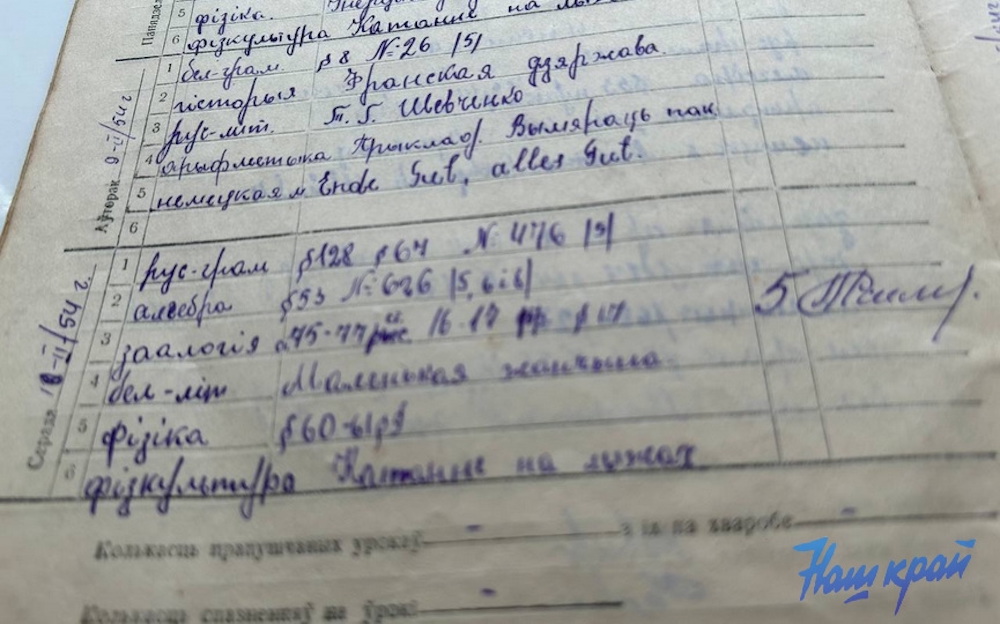 Панядзе
5 фізіка.
6 фізкультура Катание на лы
Аўторак 9-II/54 г
1 бел-грам. §8 №26 |5|
2 гісторыя Франская дзяржава
3 рус-літ. Т. Г. Шевченко
4 арыфметыка Прыклад. Вымяраць пак
5 немецкая м Ende Gut, alles Gut.
6
Серада 10-II/54 г.
1 рус-грам §128 §67 №476 |5|
2 алгебра §53 №626 |5, 6 і 8| 5.
3 заалогія 75-77 16-17 §17
4 бел-літ Маленькая жанчына
5 фізіка §60-61
6 фізкультура Катание на лыжах
Колькасць прапушчаных урокаў - з іх па хваробе -
Колькасць спазненняў на ўрокі -
Наш край